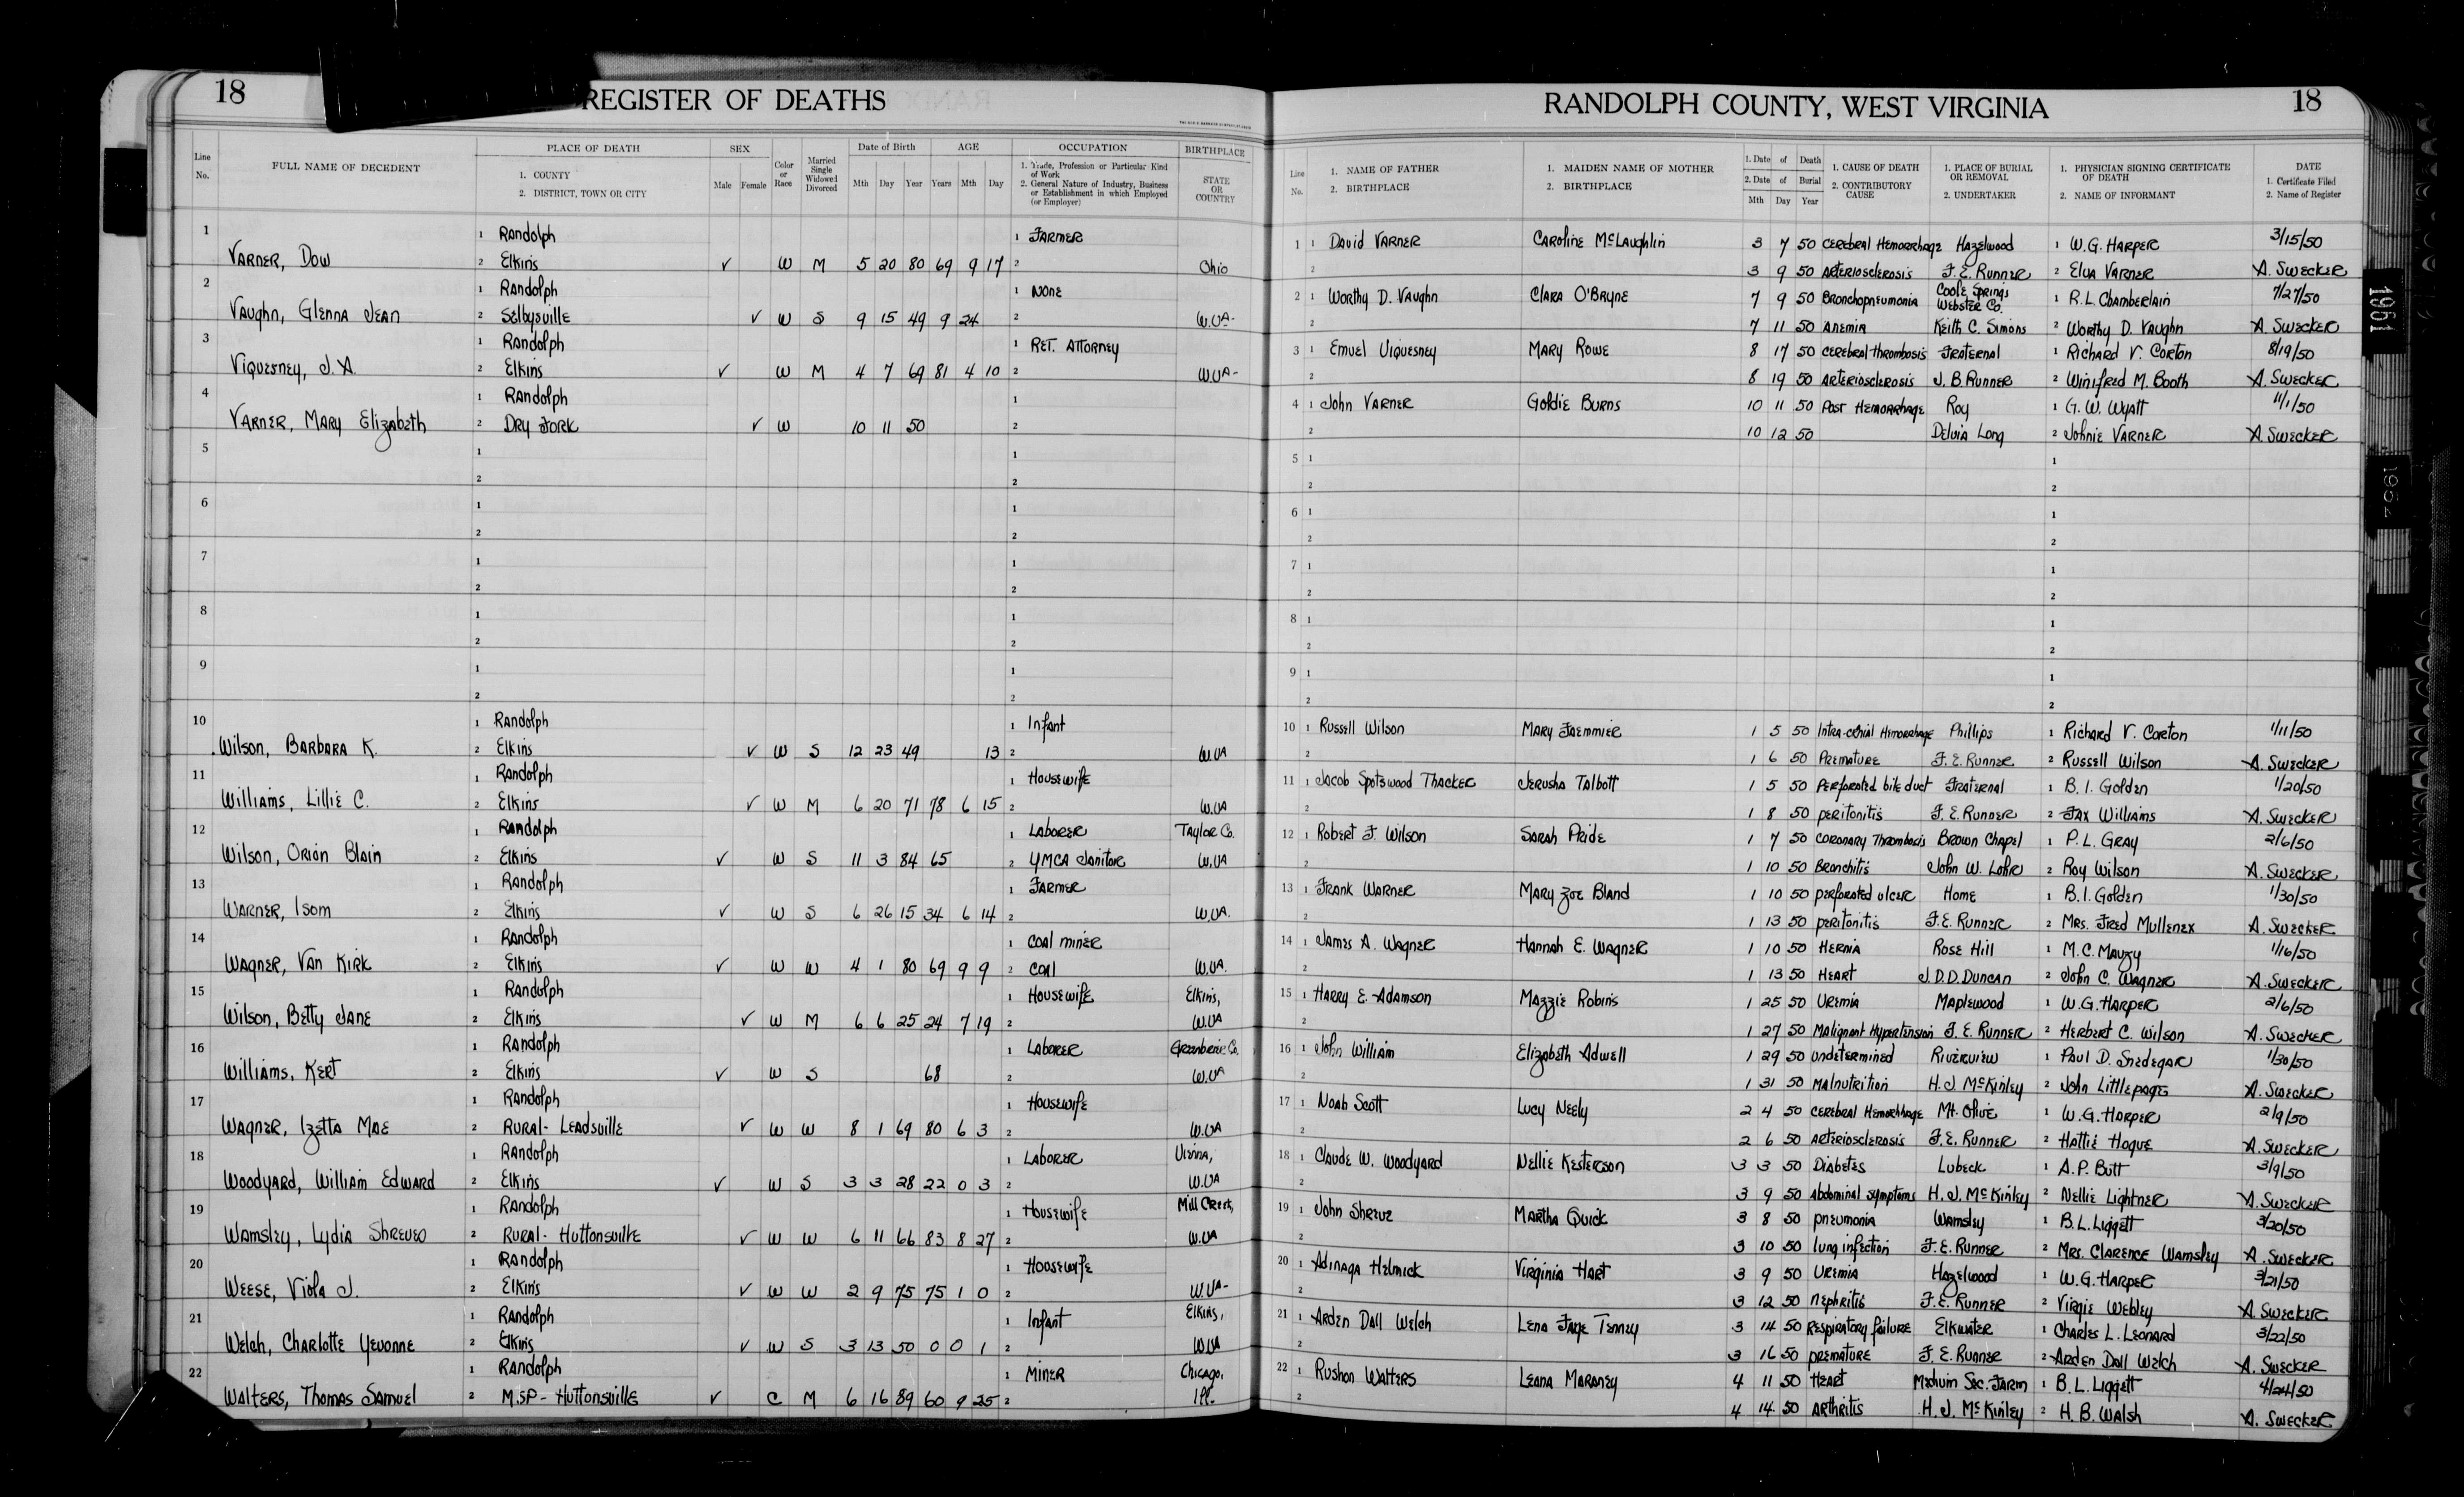 18 REGISTER OF DEATHS
RANDOLPH COUNTY, WEST VIRGINIA 18
Line No. FULL NAME OF DECEDENT PLACE OF DEATH 1. COUNTY 2. DISTRICT, TOWN OR CITY SEX Male Female Color or Race Married Single Widowed Divorced Date of Birth Mth Day Year AGE Years Mth Day OCCUPATION 1. Trade, Profession or Particular Kind of Work 2. General Nature of Industry, Business or Establishment in which Employed (or Employer) BIRTHPLACE STATE OR COUNTRY
Line No. 1. NAME OF FATHER 2. BIRTHPLACE 1. MAIDEN NAME OF MOTHER 2. BIRTHPLACE 1. Date of Death 2. Date of Burial Mth Day Year 1. CAUSE OF DEATH 2. CONTRIBUTORY CAUSE 1. PLACE OF BURIAL OR REMOVAL 2. UNDERTAKER 1. PHYSICIAN SIGNING CERTIFICATE OF DEATH 2. NAME OF INFORMANT DATE 1. Certificate Filed 2. Name of Register
1 1 Randolph 1 Farmer
Varner, Dow 2 Elkins ✓ W M 5 20 80 69 9 17 2 Ohio
2 1 Randolph 1 None
Vaughn, Glenna Jean 2 Selbyville ✓ W S 9 15 49 9 24 2 W.Va-
3 1 Randolph 1 Ret. Attorney
Viquesney, J.A. 2 Elkins ✓ W M 4 7 69 81 4 10 2 W.Va-
4 1 Randolph 1
Varner, Mary Elizabeth 2 Dry Fork ✓ W 10 11 50 2
5 1
2
6 1
2
7 1
2
8 1
2
9 1
2
10 1 Randolph 1 Infant
Wilson, Barbara K. 2 Elkins ✓ W S 12 23 49 13 2 W.Va
11 1 Randolph 1 Housewife
Williams, Lillie C. 2 Elkins ✓ W M 6 20 71 78 6 15 2 W.Va
12 1 Randolph 1 Laborer Taylor Co.
Wilson, Orion Blain 2 Elkins ✓ W S 11 3 84 65 2 YMCA Janitor W.Va
13 1 Randolph 1 Farmer
Warner, Isom 2 Elkins ✓ W S 6 26 15 34 6 14 2 W.Va.
14 1 Randolph 1 Coal miner
Wagner, Van Kirk 2 Elkins ✓ W W 4 1 80 69 9 9 2 Coal W.Va.
15 1 Randolph 1 Housewife Elkins,
Wilson, Betty Jane 2 Elkins ✓ W M 6 6 25 24 7 19 2 W.Va
16 1 Randolph 1 Laborer Greenbrier Co.
Williams, Kert 2 Elkins ✓ W S 68 2 W.Va
17 1 Randolph 1 Housewife
Wagner, Izetta Mae 2 Rural- Leadsville ✓ W W 8 1 69 80 6 3 2 W.Va
18 1 Randolph 1 Laborer Vienna,
Woodyard, William Edward 2 Elkins ✓ W S 3 3 28 22 0 3 2 W.Va
19 1 Randolph 1 Housewife Mill Creek,
Wamsley, Lydia Shreves 2 Rural- Huttonsville ✓ W W 6 11 66 83 8 27 2 W.Va
20 1 Randolph 1 Housewife
Weese, Viola J. 2 Elkins ✓ W W 2 9 75 75 1 0 2 W.Va-
21 1 Randolph 1 Infant Elkins,
Welch, Charlotte Yevonne 2 Elkins ✓ W S 3 13 50 0 0 1 2 W.Va
22 1 Randolph 1 Miner Chicago,
Walters, Thomas Samuel 2 M.S.P- Huttonsville ✓ C M 6 16 89 60 9 25 2 Ill.
1 1 David Varner Caroline McLaughlin 3 7 50 Cerebral Hemorrhage Hazelwood 1 W.G. Harper 3/15/50
2 3 9 50 Arteriosclerosis F.E. Runner 2 Elva Varner A. Swecker
2 1 Worthy D. Vaughn Clara O'Bryne 7 9 50 Bronchopneumonia Coole Springs Webster Co. 1 R.L. Chamberlain 7/27/50
2 7 11 50 Anemia Keith C. Simons 2 Worthy D. Vaughn A. Swecker
3 1 Emuel Viquesney Mary Rowe 8 17 50 Cerebral thrombosis Fraternal 1 Richard V. Corton 8/19/50
2 8 19 50 Arteriosclerosis J.B. Runner 2 Winifred M. Booth A. Swecker
4 1 John Varner Goldie Burns 10 11 50 Post Hemorrhage Roy 1 G.W. Wyatt 11/1/50
2 10 12 50 Delvia Long 2 Johnie Varner A. Swecker
5 1 1
2 2
6 1 1
2 2
7 1 1
2 2
8 1 1
2 2
9 1 1
2 2
10 1 Russell Wilson Mary 1 5 50 Hemorrhage Phillips 1 Richard V. Corton 1/11/50
2 1 6 50 Premature F.E. Runner 2 Russell Wilson A. Swecker
11 1 Jacob Spotswood Thacker Jerusha Talbott 1 5 50 Perforated bile duct Fraternal 1 B.I. Golden 1/20/50
2 1 8 50 peritonitis F.E. Runner 2 Fax Williams A. Swecker
12 1 Robert F. Wilson Sarah Pride 1 7 50 Coronary Thrombosis Brown Chapel 1 P.L. Gray 2/6/50
2 1 10 50 Bronchitis John W. Lohr 2 Roy Wilson A. Swecker
13 1 Frank Warner Mary Zoe Bland 1 10 50 perforated ulcer Home 1 B.I. Golden 1/30/50
2 1 13 50 peritonitis F.E. Runner 2 Mrs. Fred Mullenex A. Swecker
14 1 James A. Wagner Hannah E. Wagner 1 10 50 Hernia Rose Hill 1 M.C. Mauzy 1/16/50
2 1 13 50 Heart J.D.D. Duncan 2 John C. Wagner A. Swecker
15 1 Harry E. Adamson Mazzie Robins 1 25 50 Uremia Maplewood 1 W.G. Harper 2/6/50
2 1 27 50 Malignant Hypertension F.E. Runner 2 Herbert C. Wilson A. Swecker
16 1 John William Elizabeth Adwell 1 29 50 undetermined Riverview 1 Paul D. Snedegar 1/30/50
2 1 31 50 Malnutrition H.J. McKinley 2 John Littlepage A. Swecker
17 1 Noah Scott Lucy Neely 2 4 50 Cerebral Hemorrhage Mt. Olive 1 W.G. Harper 2/9/50
2 2 6 50 Arteriosclerosis F.E. Runner 2 Hattie Hogue A. Swecker
18 1 Claude W. Woodyard Nellie Kesterson 3 3 50 Diabetes Lubeck 1 A.P. Butt 3/9/50
2 3 9 50 Abdominal symptoms H.J. McKinley 2 Nellie Lightner A. Swecker
19 1 John Shreve Martha Quick 3 8 50 pneumonia Wamsley 1 B.L. Liggett 3/20/50
2 3 10 50 lung infection F.E. Runner 2 Mrs. Clarence Wamsley A. Swecker
20 1 Adinaga Helmick Virginia Hart 3 9 50 Uremia Hazelwood 1 W.G. Harper 3/21/50
2 3 12 50 nephritis F.E. Runner 2 Virgie Webley A. Swecker
21 1 Arden Dall Welch Lena Faye Tenney 3 14 50 Respiratory failure Elkwater 1 Charles L. Leonard 3/22/50
2 3 16 50 premature F.E. Runner 2 Arden Dall Welch A. Swecker
22 1 Rushon Walters Leana Maraney 4 11 50 Heart Medium Sec. Farm 1 B.L. Liggett 4/24/50
2 4 14 50 Arthritis H.J. McKinley 2 H.B. Walsh A. Swecker
1961
1952